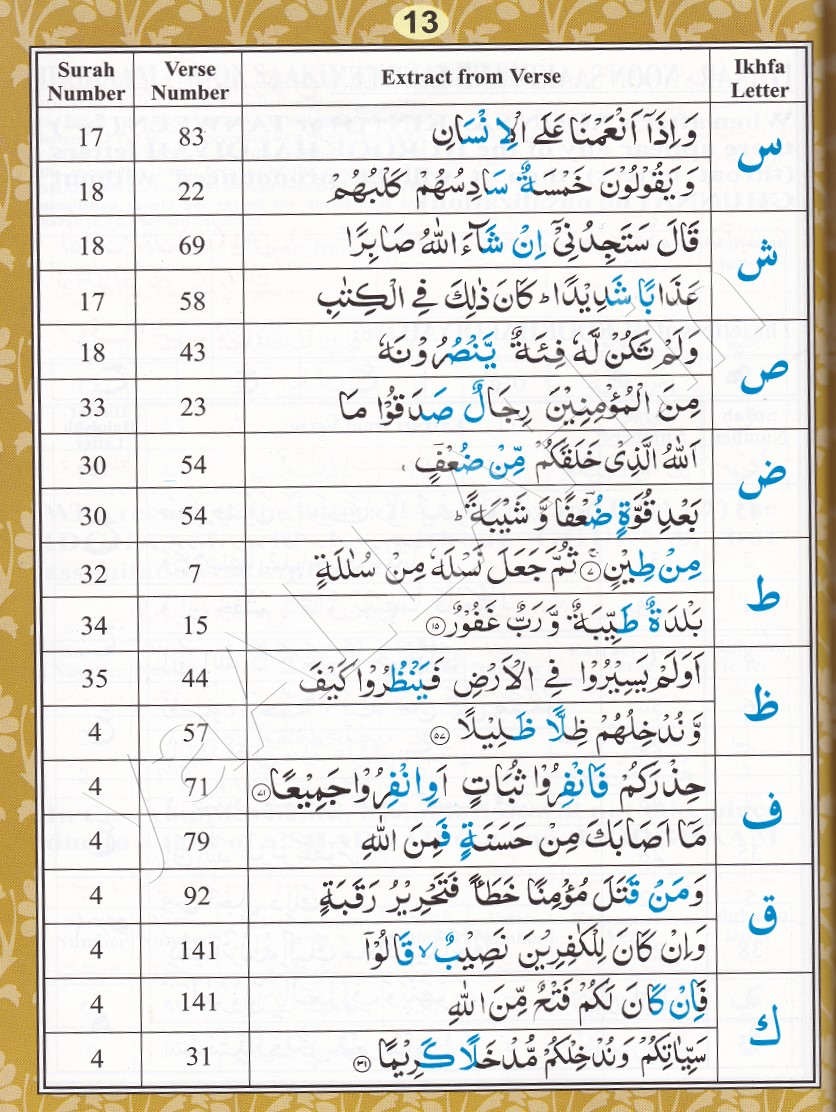 13
Surah Number Verse Number Extract from Verse Ikhfa Letter
17 83 وَ اِذَاۤ اَنْعَمْنَا عَلَى الْاِنْسَانِ س
18 22 وَ يَقُوْلُوْنَ خَمْسَةٌ سَادِسُهُمْ كَلْبُهُمْ
18 69 قَالَ سَتَجِدُنِيْۤ اِنْ شَآءَ اللّٰهُ صَابِرًا ش
17 58 عَذَابًا شَدِيْدًا ؕ كَانَ ذٰلِكَ فِي الْكِتٰبِ
18 43 وَلَمْ تَكُنْ لَّهٗ فِئَةٌ يَّنْصُرُوْنَهٗ ص
33 23 مِنَ الْمُؤْمِنِيْنَ رِجَالٌ صَدَقُوْا مَا
30 54 اَللّٰهُ الَّذِيْ خَلَقَكُمْ مِّنْ ضُعْفٍ ض
30 54 بَعْدِ قُوَّةٍ ضُعْفًا وَّ شَيْبَةً ؕ
32 7 مِنْ طِيْنٍ ۚ﴿۷﴾ ثُمَّ جَعَلَ نَسْلَهٗ مِنْ سُلٰلَةٍ ط
34 15 بَلْدَةٌ طَيِّبَةٌ وَّ رَبٌّ غَفُوْرٌ ﴿۱۵﴾
35 44 اَوَلَمْ يَسِيْرُوْا فِي الْاَرْضِ فَيَنْظُرُوْا كَيْفَ ظ
4 57 وَّنُدْخِلُهُمْ ظِلًّا ظَلِيْلًا ﴿۵۷﴾
4 71 حِذْرَكُمْ فَانْفِرُوْا ثُبَاتٍ اَوِ انْفِرُوْا جَمِيْعًا ﴿۷۱﴾ ف
4 79 مَاۤ اَصَابَكَ مِنْ حَسَنَةٍ فَمِنَ اللّٰهِ
4 92 وَمَنْ قَتَلَ مُؤْمِنًا خَطَـًٔا فَتَحْرِيْرُ رَقَبَةٍ ق
4 141 وَاِنْ كَانَ لِلْكٰفِرِيْنَ نَصِيْبٌ ۙ قَالُوْۤا
4 141 فَاِنْ كَانَ لَكُمْ فَتْحٌ مِّنَ اللّٰهِ ك
4 31 سَيِّاٰتِكُمْ وَنُدْخِلْكُمْ مُّدْخَلًا كَرِيْمًا ﴿۳۱﴾